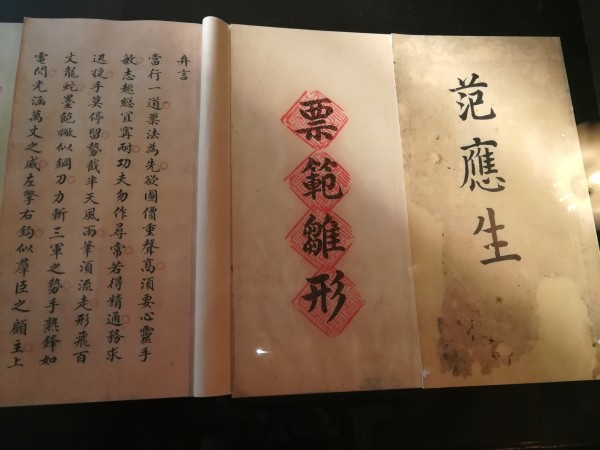 范應生
票範雛形
弁言
當行一道票法為先欲圖價重聲高湏要心靈手
敏志趣總宜寧耐功夫勿作尋常若得精通務求
迅捷手莫停留勢截半天風雨筆湏流走形飛百
丈龍蛇墨飽撇似鋼刀力斬三軍之勢手熟鋒如
電閃光涵萬丈之威左擎右鈎似羣臣之顧主上